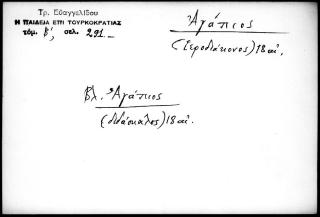 Τρ. Εὐαγγελίδου
Η ΠΑΙΔΕΙΑ ΕΠΙ ΤΟΥΡΚΟΚΡΑΤΙΑΣ
τόμ. Β', σελ. 291
Ἀγάπιος
(Ἱεροδιάκονος) 18 αἰ.
Βλ. Ἀγάπιος
(διδάσκαλος) 18 αἰ.